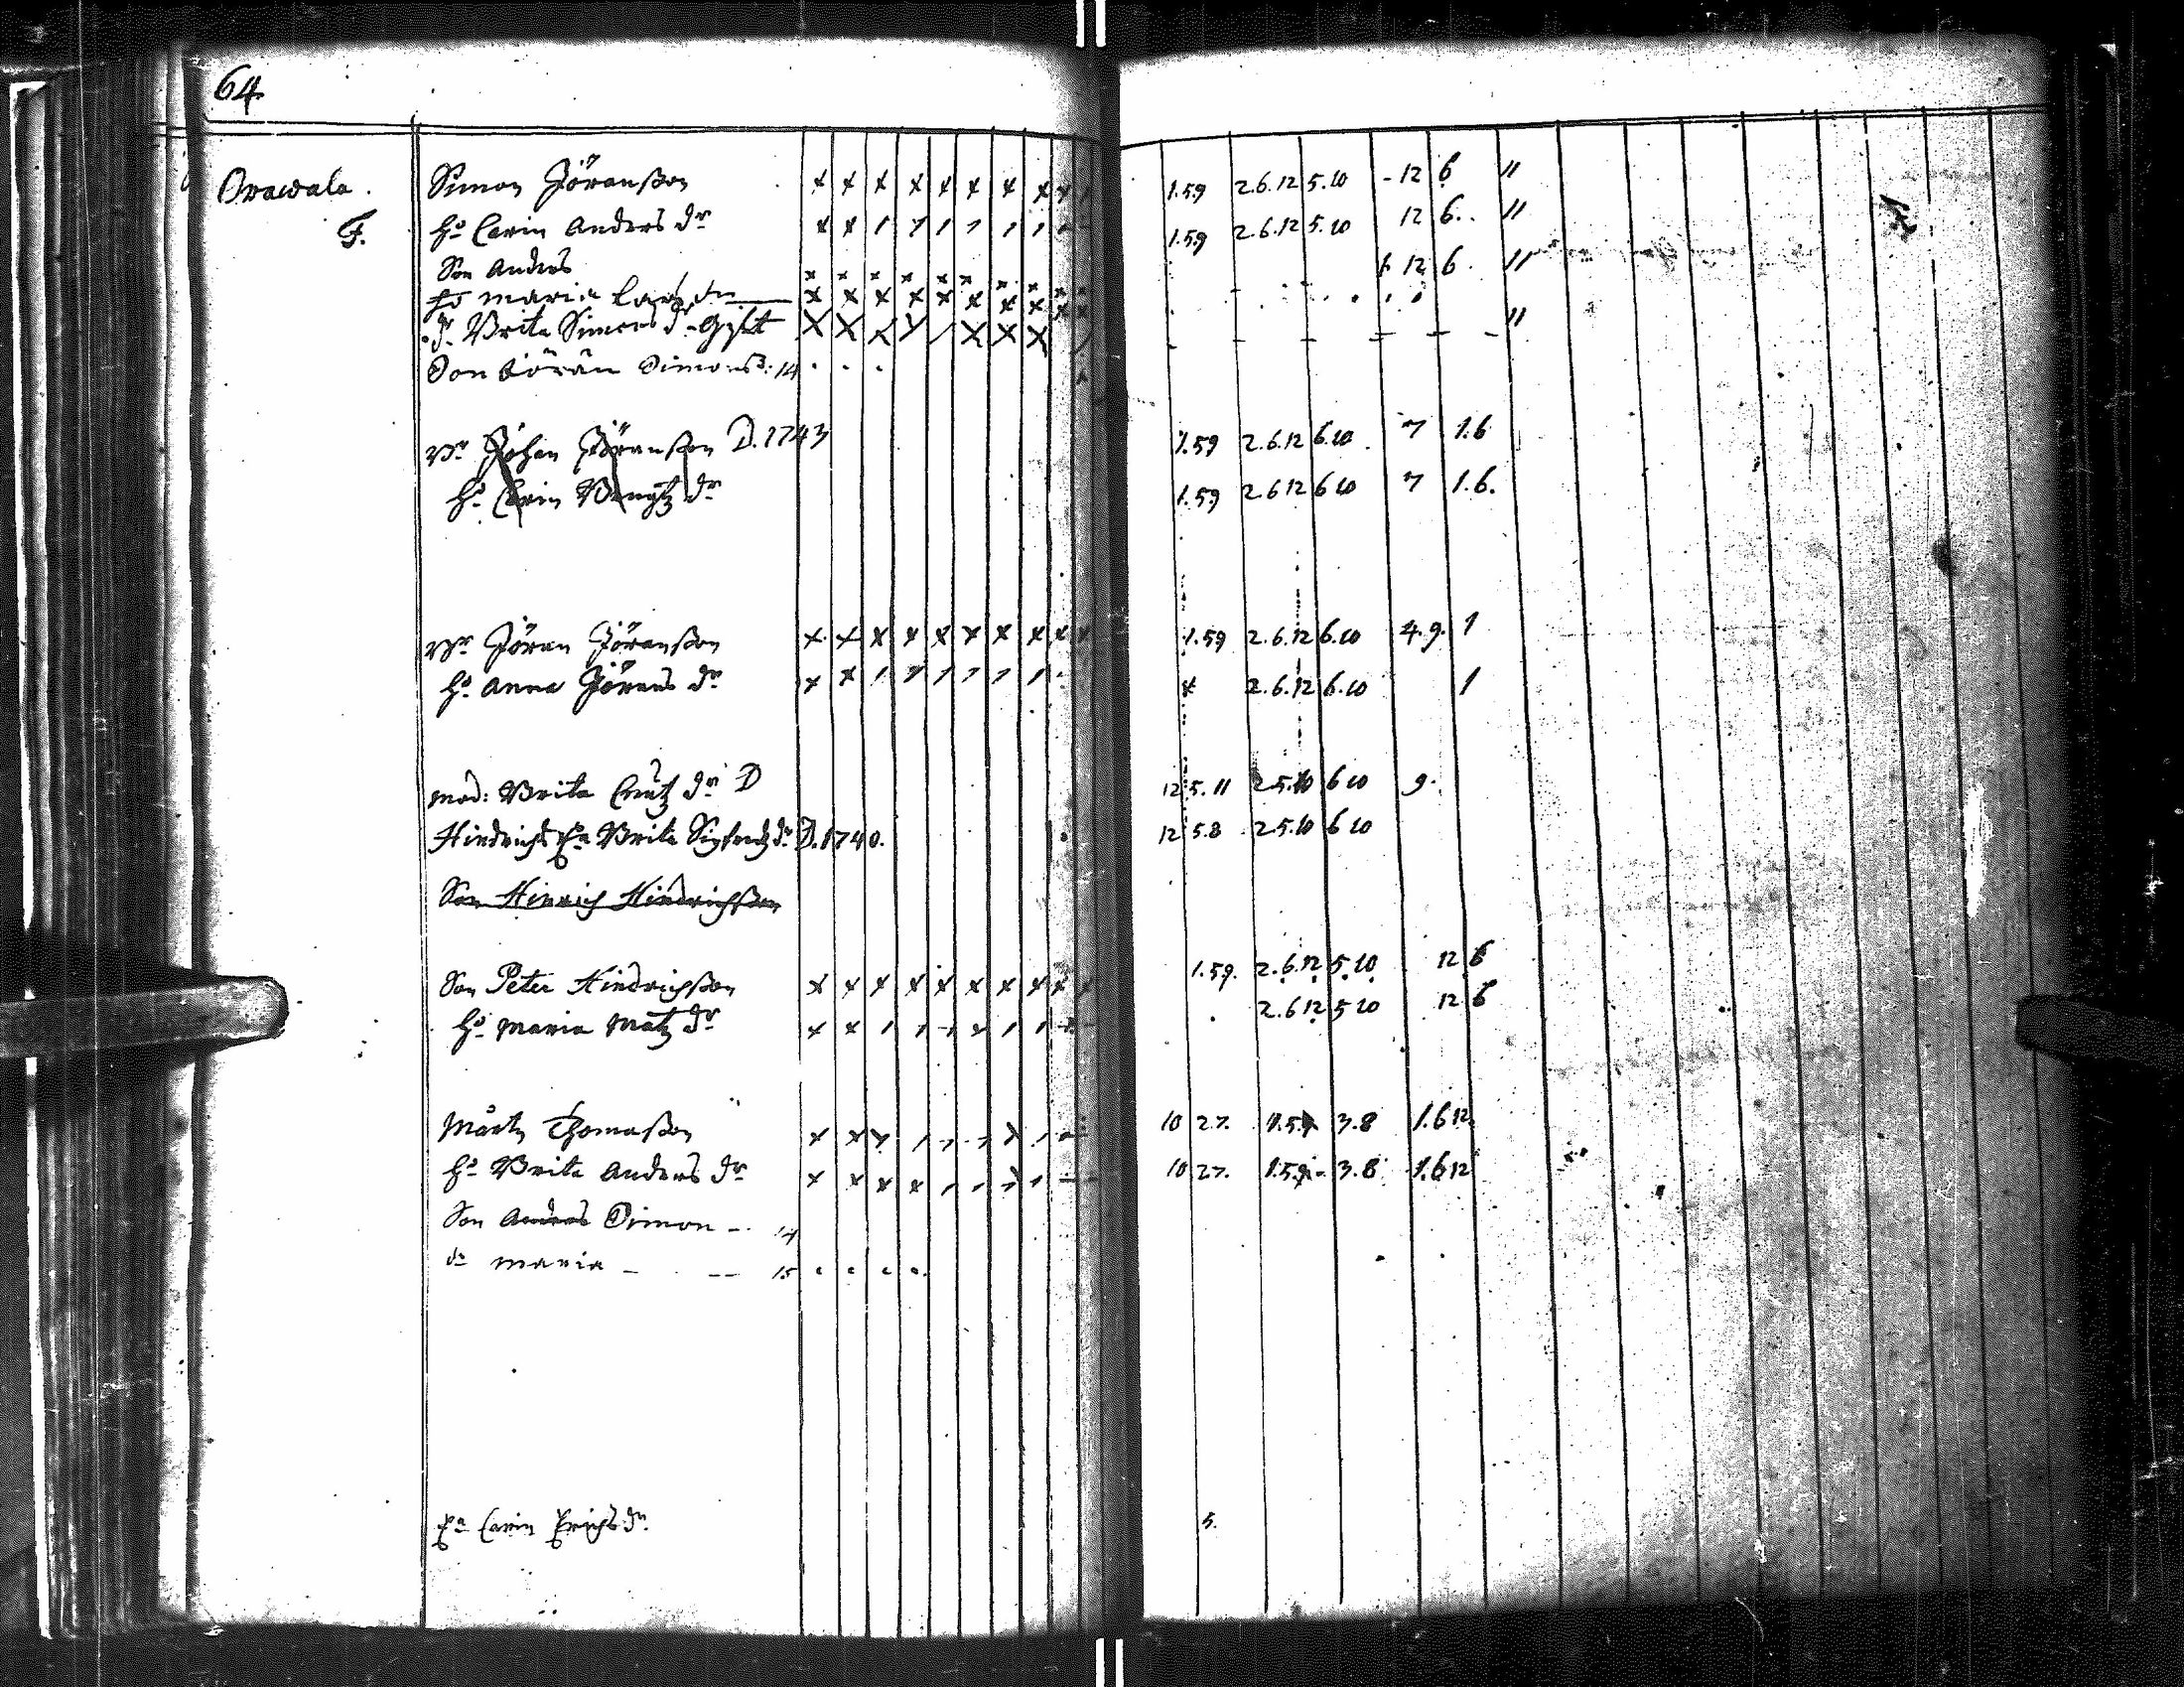 64.
Orawala. Simon Jöransson 1.59 2.6.12 5.10 - 12 6 "
F. H:o Carin Anders d:r 1.59 2.6.12 5.10 12 6. "
Son Anders 12 6. "
Ho Maria Lars dr
d:r Brita Simons d:r Gift "
Son Jöran Simonss: 14
Br Johan Jöransson D. 1743 1.59 2.6.12 6.10 7 1.6
H:o Carin Bengtz d:r 1.59 2.6 12 6 10 7 1.6.
Br Jöran Jöransson 1.59 2.6.12 6.10 4.9. 1
H:o Anna Jörans d:r 2.6.12 6.10 1
Mod: Brita d:r D 12 5.11 2 5.10 6 10 9.
Hindrichs E:a Brita Sigfredz d:r D. 1740. 12 5.8 2 5.10 6 10
Son Hinrich Hindrichsson
Son Peter Hindrichsson 1.59. 2.6.12 5.10 12 6
H:o Maria Matz d:r 2.6 12 5 10 12 6
Mårtn Thomasson 10 27. 1.5.9 3.8 1.6 12
H:o Brita Anders d:r 10 27. 1.59 - 3.8 1.6 12
Son Anders Simon - 14
dr Maria - -- 15
E:a Carin Erichs d:r 5.